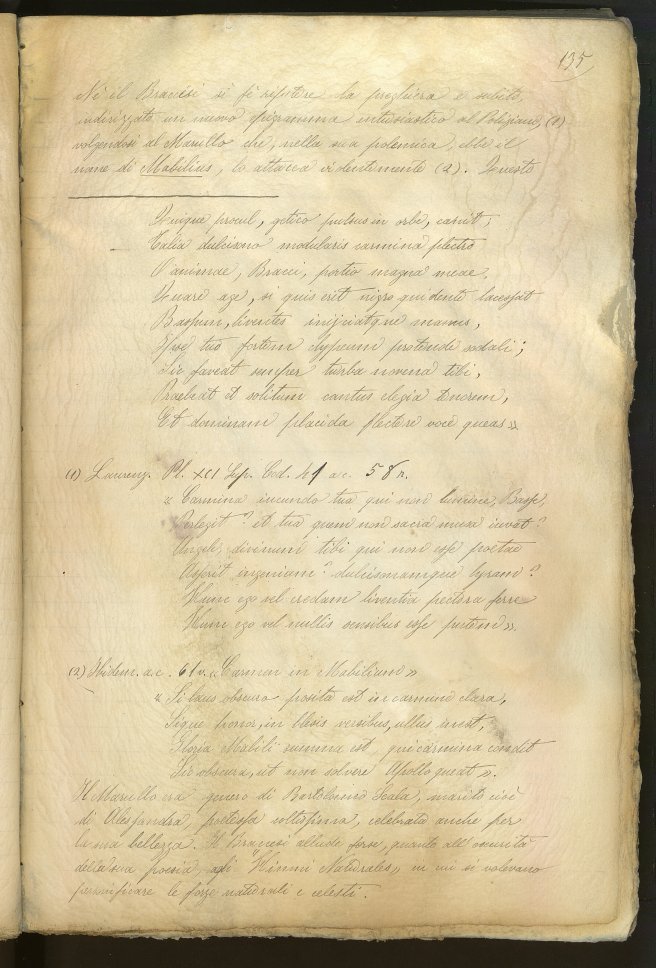 135
Nè il Braccesi si fè ripetere la preghiera e subito,
indirizzato un nuovo epigramma entusiastico al Poliziano, (1)
volgendosi al Marullo che, nella sua polemica, ebbe il
nome di Mabilius, lo attacca violentemente (2). Questo
Quique procul, getico pulsus in orbe, canit;
Talia dulcisono modularis carmina plectro
O animae, Bracci, portio magna meae.
Quare age, si quis erit nigro qui dente lacessat
Bassum, liventes iniiciatque manus,
Ipse tuo fortem clypeum protende sodali;
Sic faveat semper turba novena tibi,
Praebeat et solitum cantus elegia tenorem,
Et dominam placida flectere voce queas »
(1) Laurenz. Pl. XCI Sup. Cod. 41 a c. 58 r.
« Carmina iucundo tua qui non lumine, Basse,
Perlegit? et tua quem non sacra musa iuvat?
Angeli, divinum tibi qui non esse poetae
Asserit ingenium? dulcisonamque lyram?
Hunc ego vel credam liventia pectora ferre
Hunc ego vel nullis sensibus esse putem ».
(2) Ibidem. a c. 61 v. « Carmen in Mabilium »
« Si laus obscuro posita est in carmine clara,
Sique honor, in blesis versibus, ullus inest,
Gloria Mabili summa est, qui carmina condit
Sic obscura, ut non solvere Apollo queat ».
Il Marullo era genero di Bartolomeo Scala, marito cioè
di Alessandra, poetessa coltissima, celebrata anche per
la sua bellezza. Il Braccesi allude forse, quanto all'oscurità
della sua poesia, agli "Hinni Naturales" in cui si volevano
personificare le forze naturali e celesti.